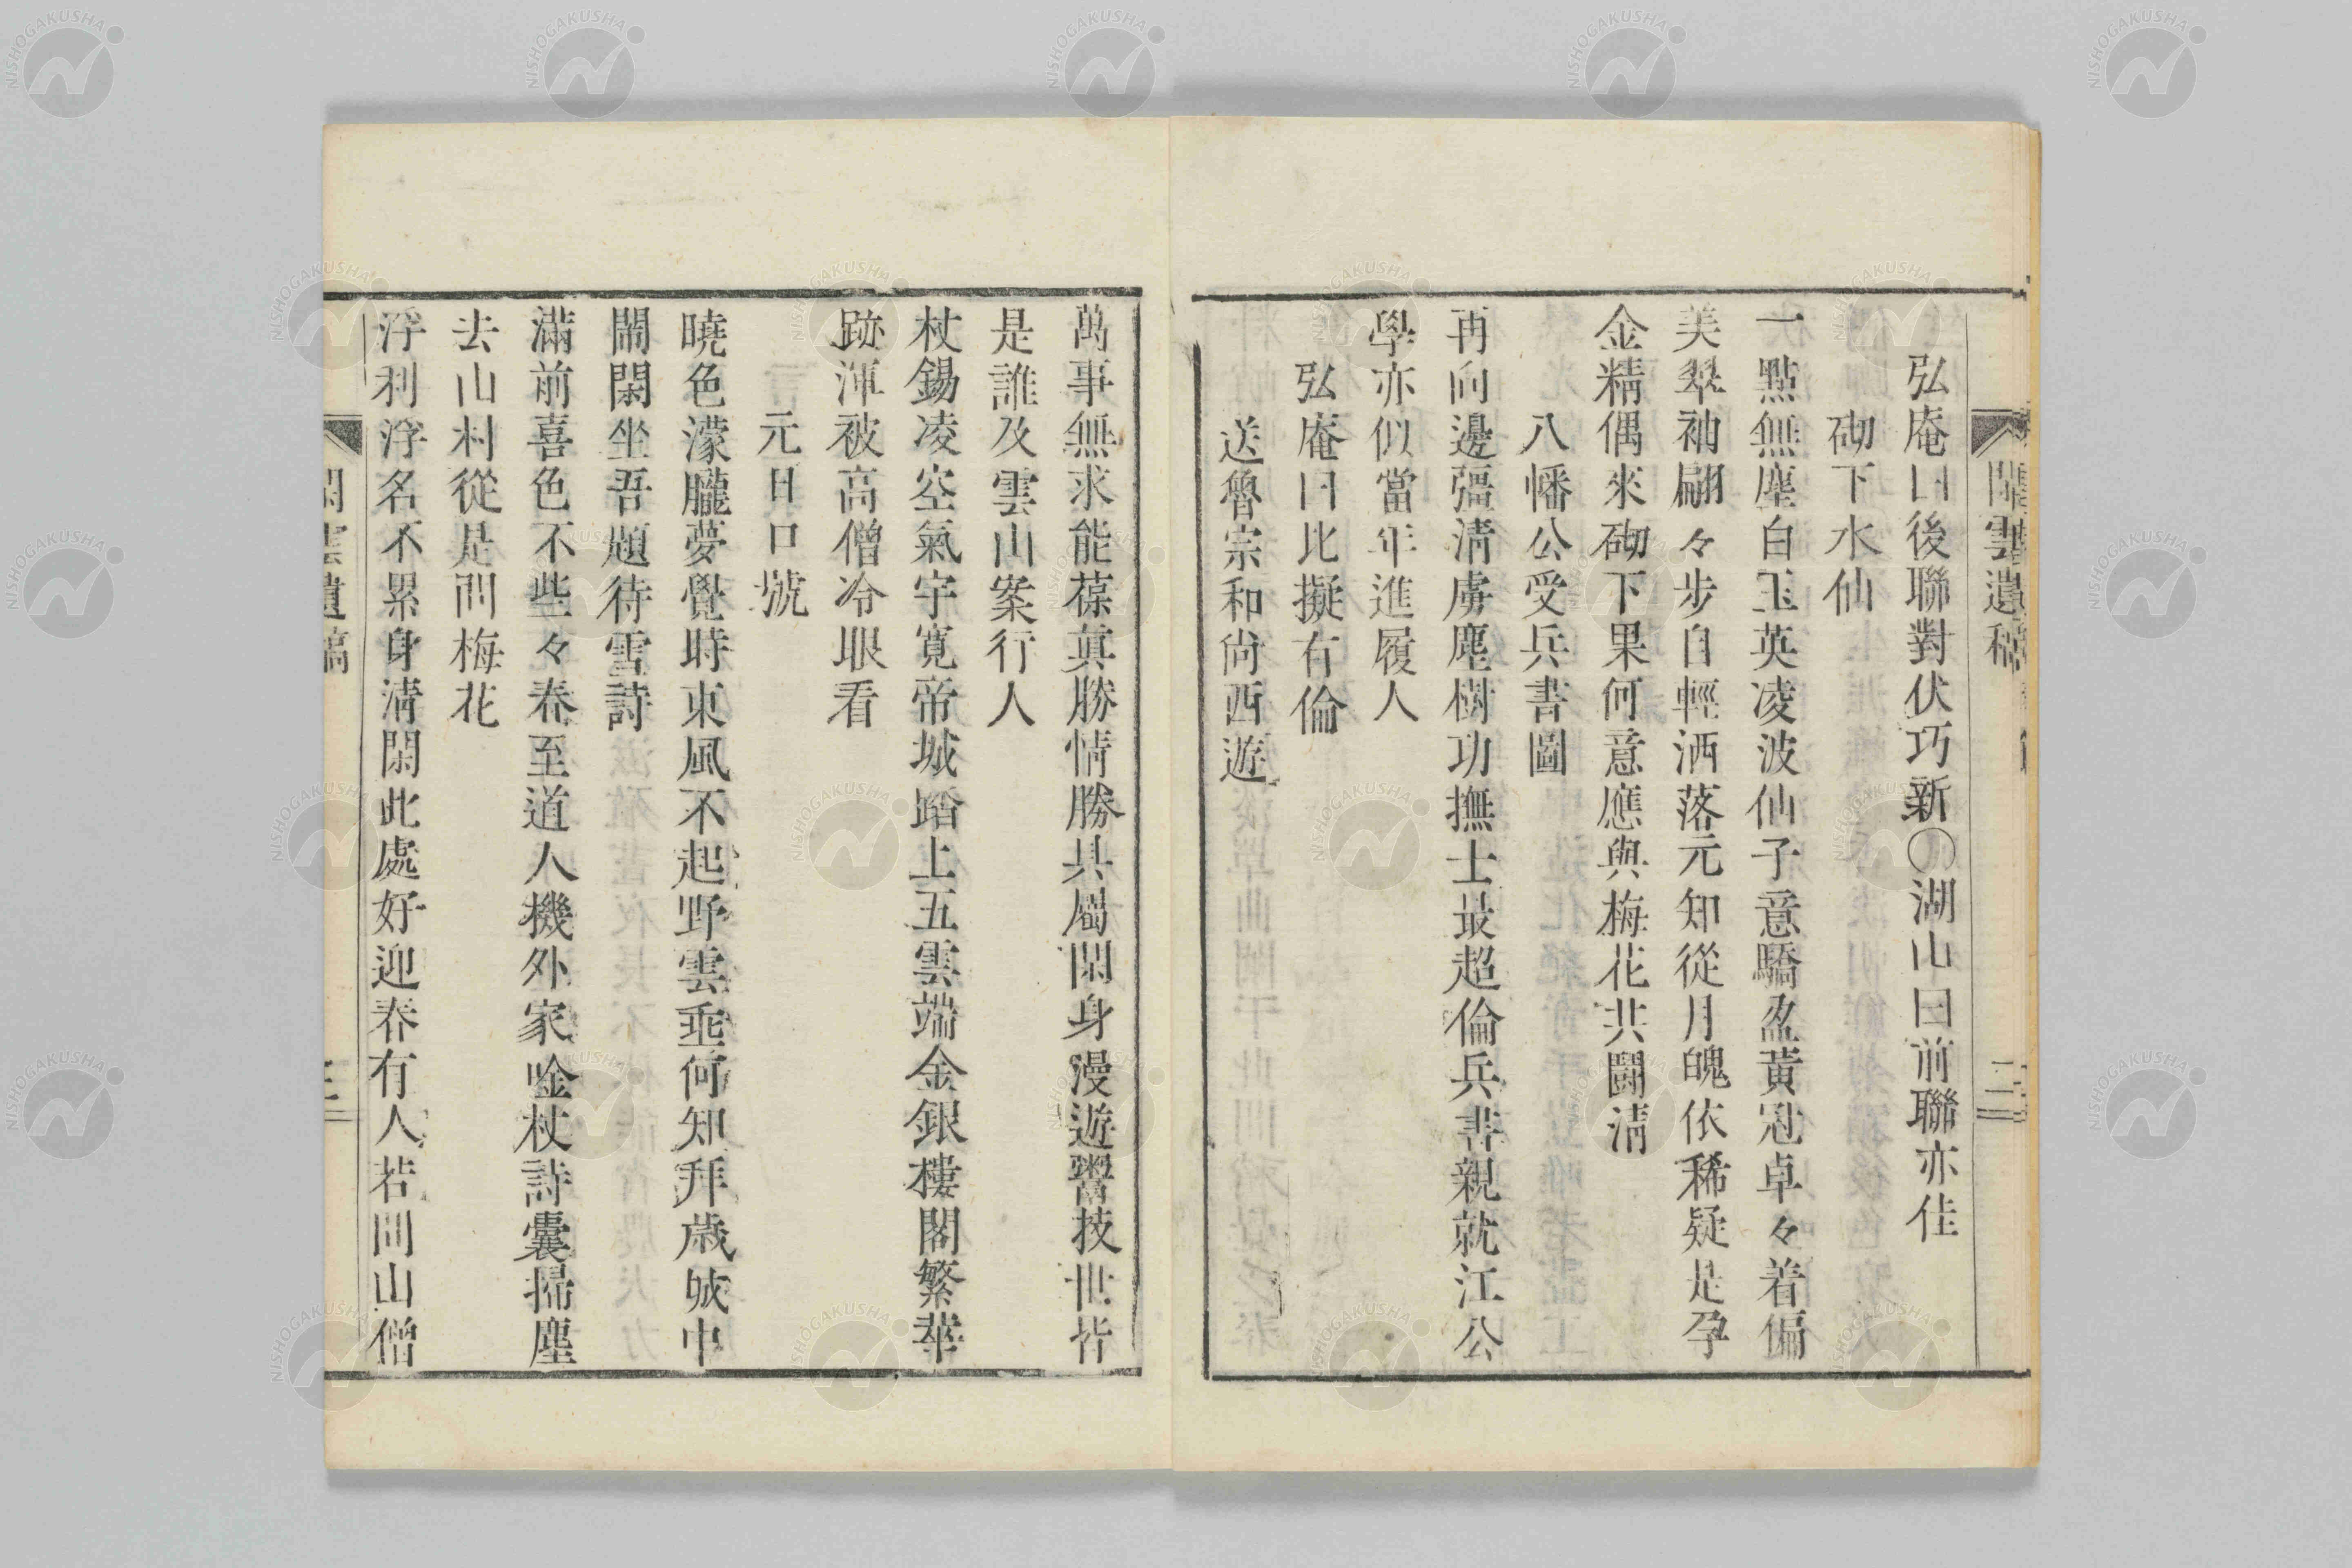 閒雲遺稿
二
弘庵曰後聯對伏巧新○湖山曰前聯亦佳
砌下水仙
一點無塵白玉英凌波仙子意驕盈黃冠卓々着偏
美翠袖翩々步自輕洒落元知從月魄依稀疑是孕
金精偶來砌下果何意應與梅花共鬪淸
八幡公受兵書圖
再向邊彊淸虜塵樹功撫士最超倫兵書親就江公
學亦似當年進履人
弘庵曰比擬有倫
送魯宗和尙西遊
萬事無求能葆眞勝情勝具屬閑身漫遊嚮技世皆
是誰及雲山案行人
杖錫凌空氣宇寬帝城踏上五雲端金銀樓閣繁華
跡渾被高僧冷眼看
元日口號
曉色濛朧夢覺時東風不起野雲垂何知拜歲城中
鬧閑坐吾題待雪詩
滿前喜色不些々春至道人機外家唫杖詩囊掃塵
去山村從是問梅花
浮利浮名不累身淸閑此處好迎春有人若問山僧
閑雲遺稿